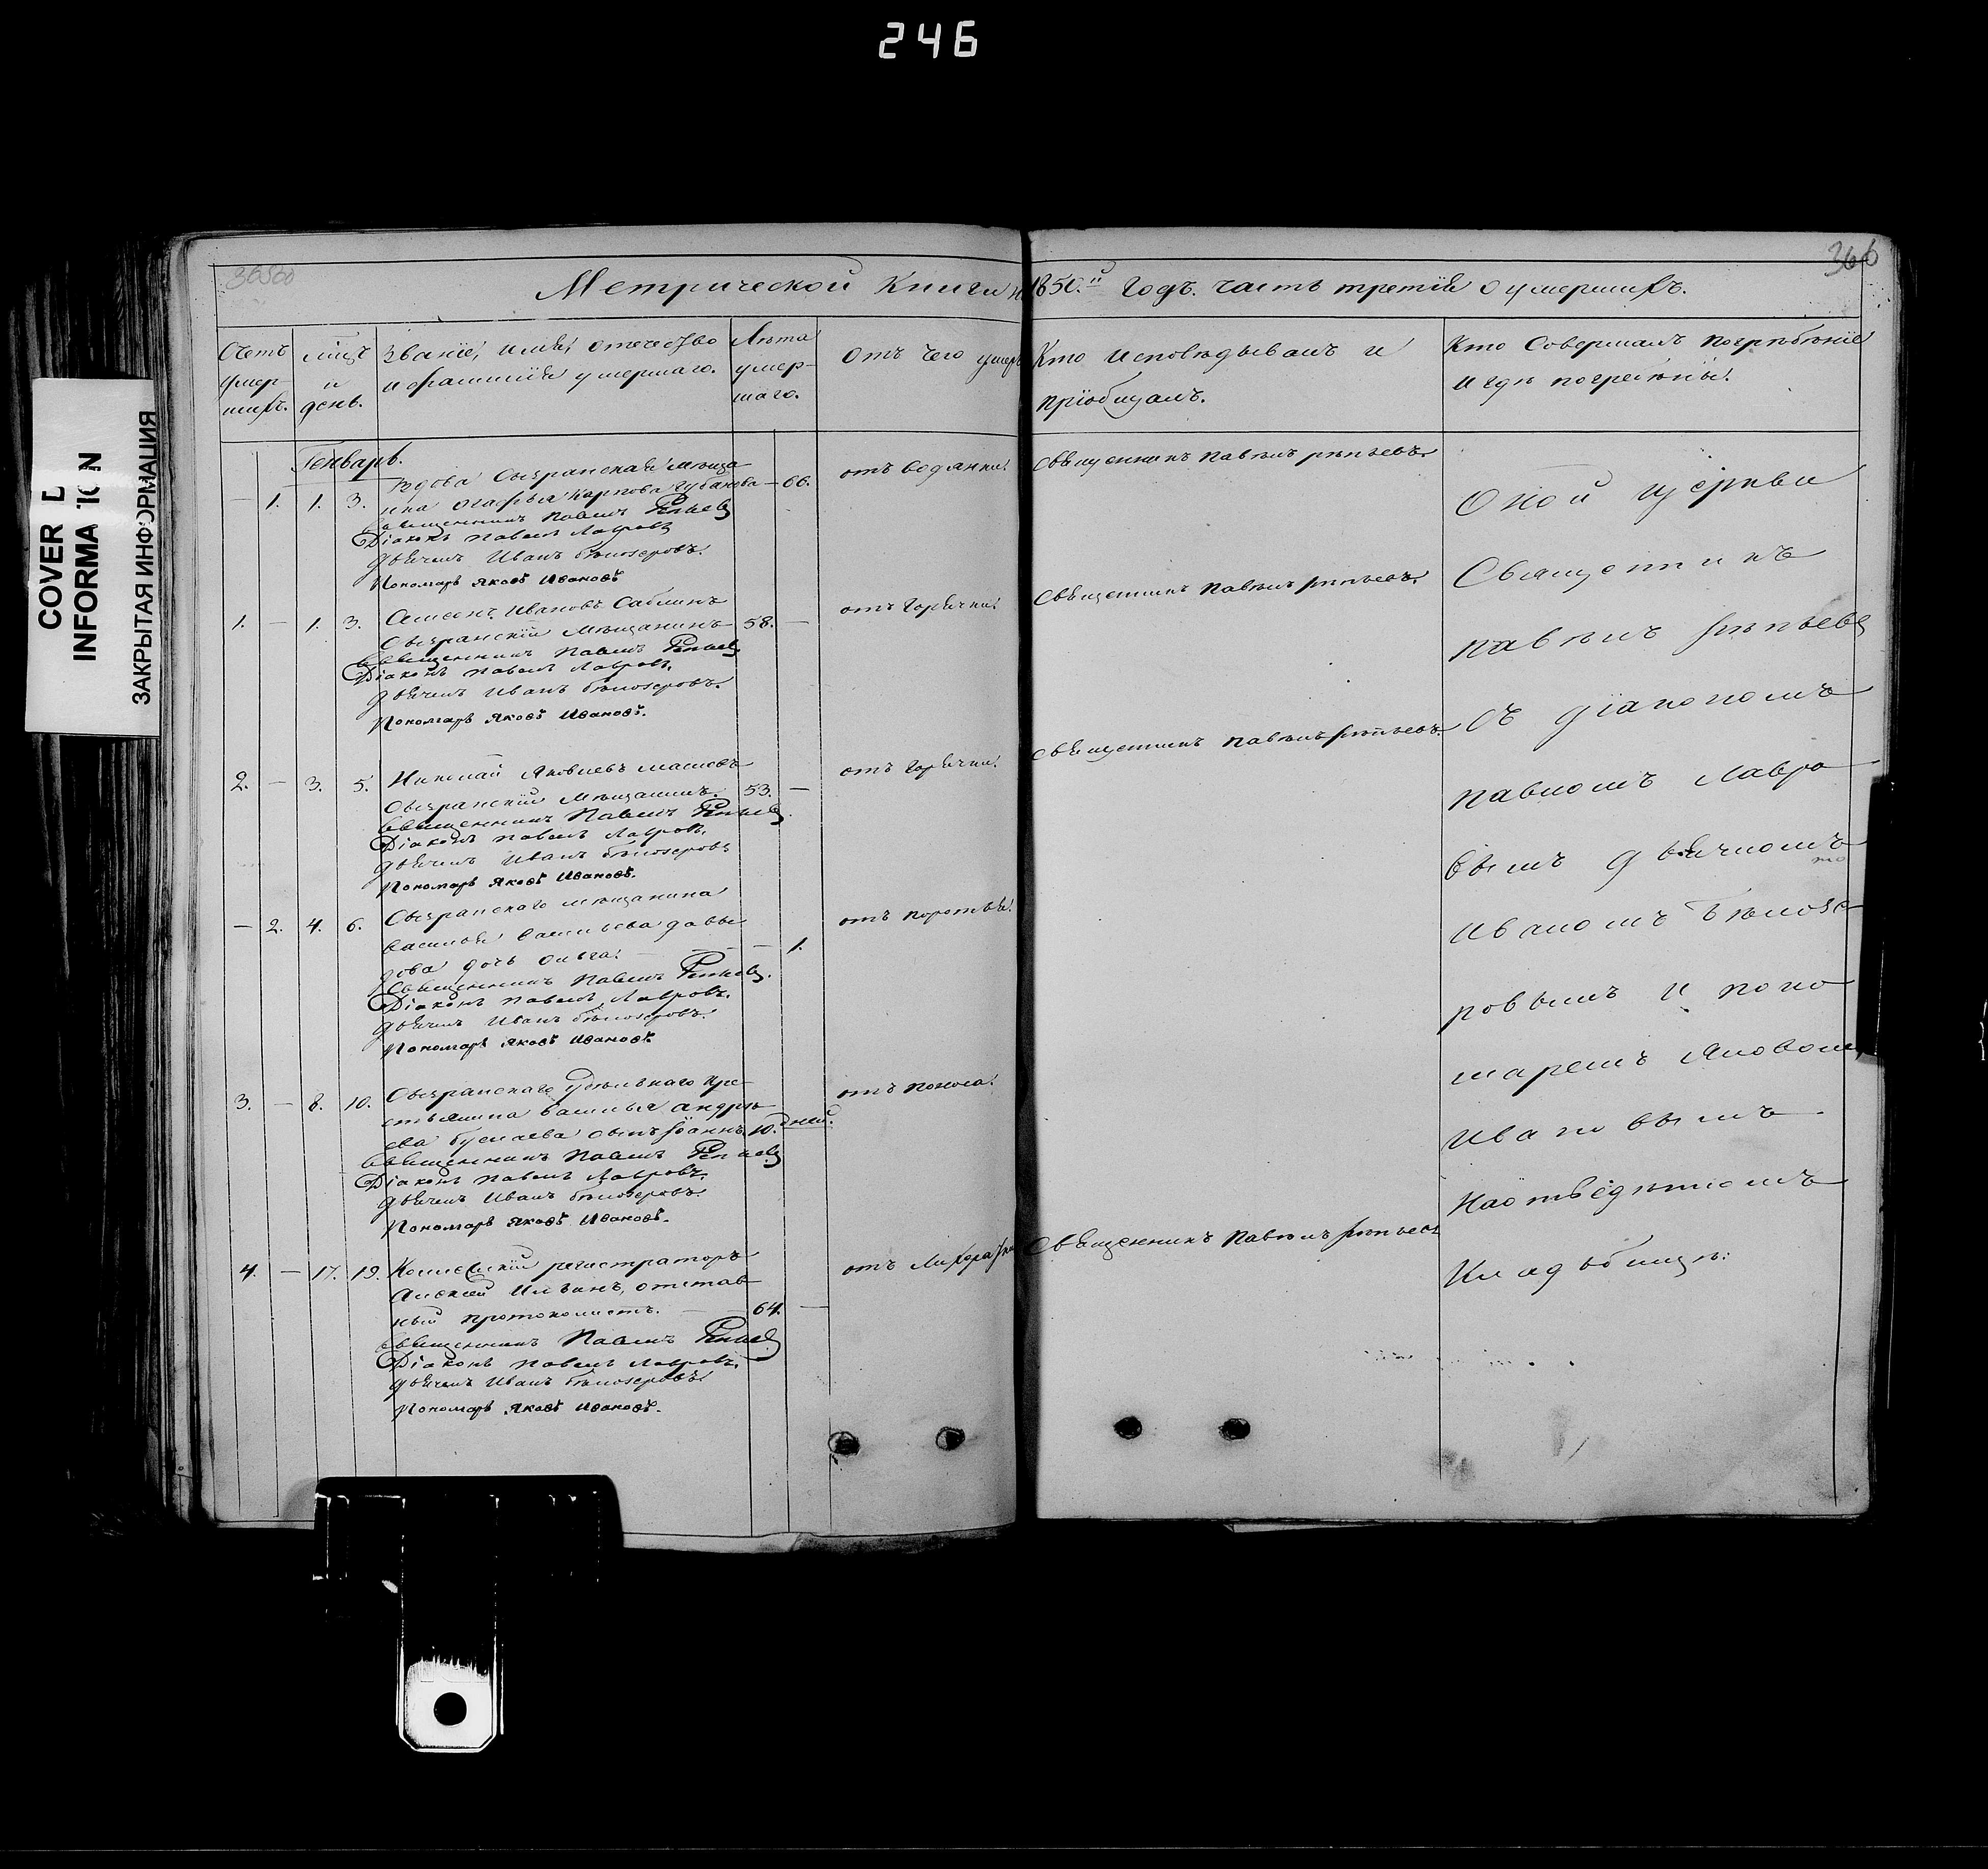 246
COVER
INFORMA
ЗАКРЫТАЯ ИНФОРМАЦИЯ
366
Метрической Книги на 1850.й Годъ. часть третія о умершихъ.
Счетъ умершихъ.
Мѣсяцъ и день.
Званіе, имя, отечество
и фамилія умершаго.
Лѣта
умер-
шаго.
Отъ чего умеръ
Кто исповѣдывалъ и
пріобщалъ.
Кто Совершалъ погребѣніе
и гдѣ погребѣны.
Генварь.
— 1. 1. 3. Вдова Сызранская мѣща
нка Агафья Карпова Губанова — 66. отъ водянки Священникъ Павелъ Рѣпьевъ
Священникъ Павелъ Репьевъ
Діаконъ Павелъ Лавровъ
Дьячекъ Иванъ Бѣлозеровъ.
Пономарь Яковъ Ивановъ
1. — 1. 3. Семенъ Ивановъ Саблинъ
Сызранскій Мѣщанинъ 58. — отъ Горячки Священникъ Павелъ Рѣпьевъ
Священникъ Павелъ Репьевъ
Діаконъ Павелъ Лавровъ.
Дьячекъ Иванъ Бѣлозеровъ.
Пономарь Яковъ Ивановъ.
2. — 3. 5. Николай Яковлевъ Масловъ
Сызранскій Мѣщанинъ. 53. — отъ Горячки Священникъ Павелъ Рѣпьевъ
Священникъ Павелъ Репьевъ
Діаконъ Павелъ Лавровъ.
Дьячекъ Иванъ Бѣлозеровъ
Пономарь Яковъ Ивановъ.
— 2. 4. 6. Сызранскаго мѣщанина
Василья Васильева Давы
дова дочь Ольга — 1. отъ
Священникъ Павелъ Репьевъ.
Діаконъ Павелъ Лавровъ.
Дьячекъ Иванъ Бѣлозеровъ.
Пономарь Яковъ Ивановъ
3. — 8. 10. Сызранскаго Удѣльнаго кре-
стьянина Василья Андрѣ
ева сынъ Іоаннъ 10. дней. отъ поноса
Священникъ Павелъ Репьевъ
Діаконъ Павелъ Лавровъ.
Дьячекъ Иванъ Бѣлозеровъ
Пономарь Яковъ Ивановъ.
4. — 17. 19. Коллежскій регистраторъ
Алексей Ильинъ, отстав
ный протоколистъ. — 64. — отъ Лихорадки Священникъ Павелъ Рѣпьевъ
Священникъ Павелъ Репьевъ
Діаконъ Павелъ Лавровъ.
Дьячекъ Иванъ Бѣлозеровъ
Пономарь Яковъ Ивановъ.
Оной церкви
Священникъ
Павелъ Рѣпьевъ
съ діакономъ
Павломъ Лавро
вымъ дьячкомъ
Иваномъ Бѣлозе
ровымъ и поно
маремъ Яковомъ
Ивановымъ
на отведѣнномъ
кладьбищѣ.